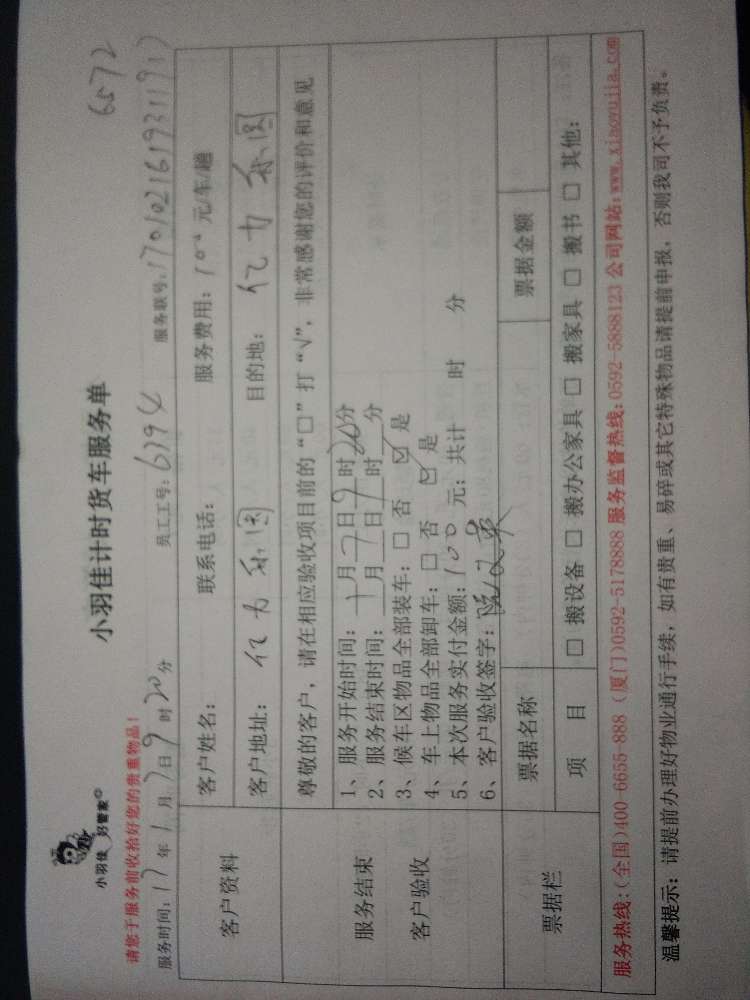 6572
小羽佳 好管家
小羽佳计时货车服务单
请您于服务前收拾好您的贵重物品!
服务时间:17年1月7日9时20分 员工工号:6394 服务联号:17010216193119
客户资料
客户姓名: 联系电话: 服务费用:100 元/车/趟
客户地址:亿力 园 目的地:亿力 园
尊敬的客户,请在相应验收项目前的“□”打“√”,非常感谢您的评价和意见
服务结束
客户验收
1、服务开始时间:1月7日9时20分
2、服务结束时间: 月 日 时 分
3、候车区物品全部装车:□ 否 ☑ 是
4、车上物品全部卸车:□ 否 ☑ 是
5、本次服务实付金额:100 元; 共计 时 分
6、客户验收签字:
票据栏
票据名称 票据金额
项 目 □ 搬设备 □ 搬办公家具 □ 搬家具 □ 搬书 □ 其他:
服务热线:(全国)400-6655-888 (厦门)0592-5178888 服务监督热线:0592-5888123 公司网站:www.xiaoyujia.com
温馨提示:请提前办理好物业通行手续,如有贵重、易碎或其它特殊物品请提前申报,否则我司不予负责。